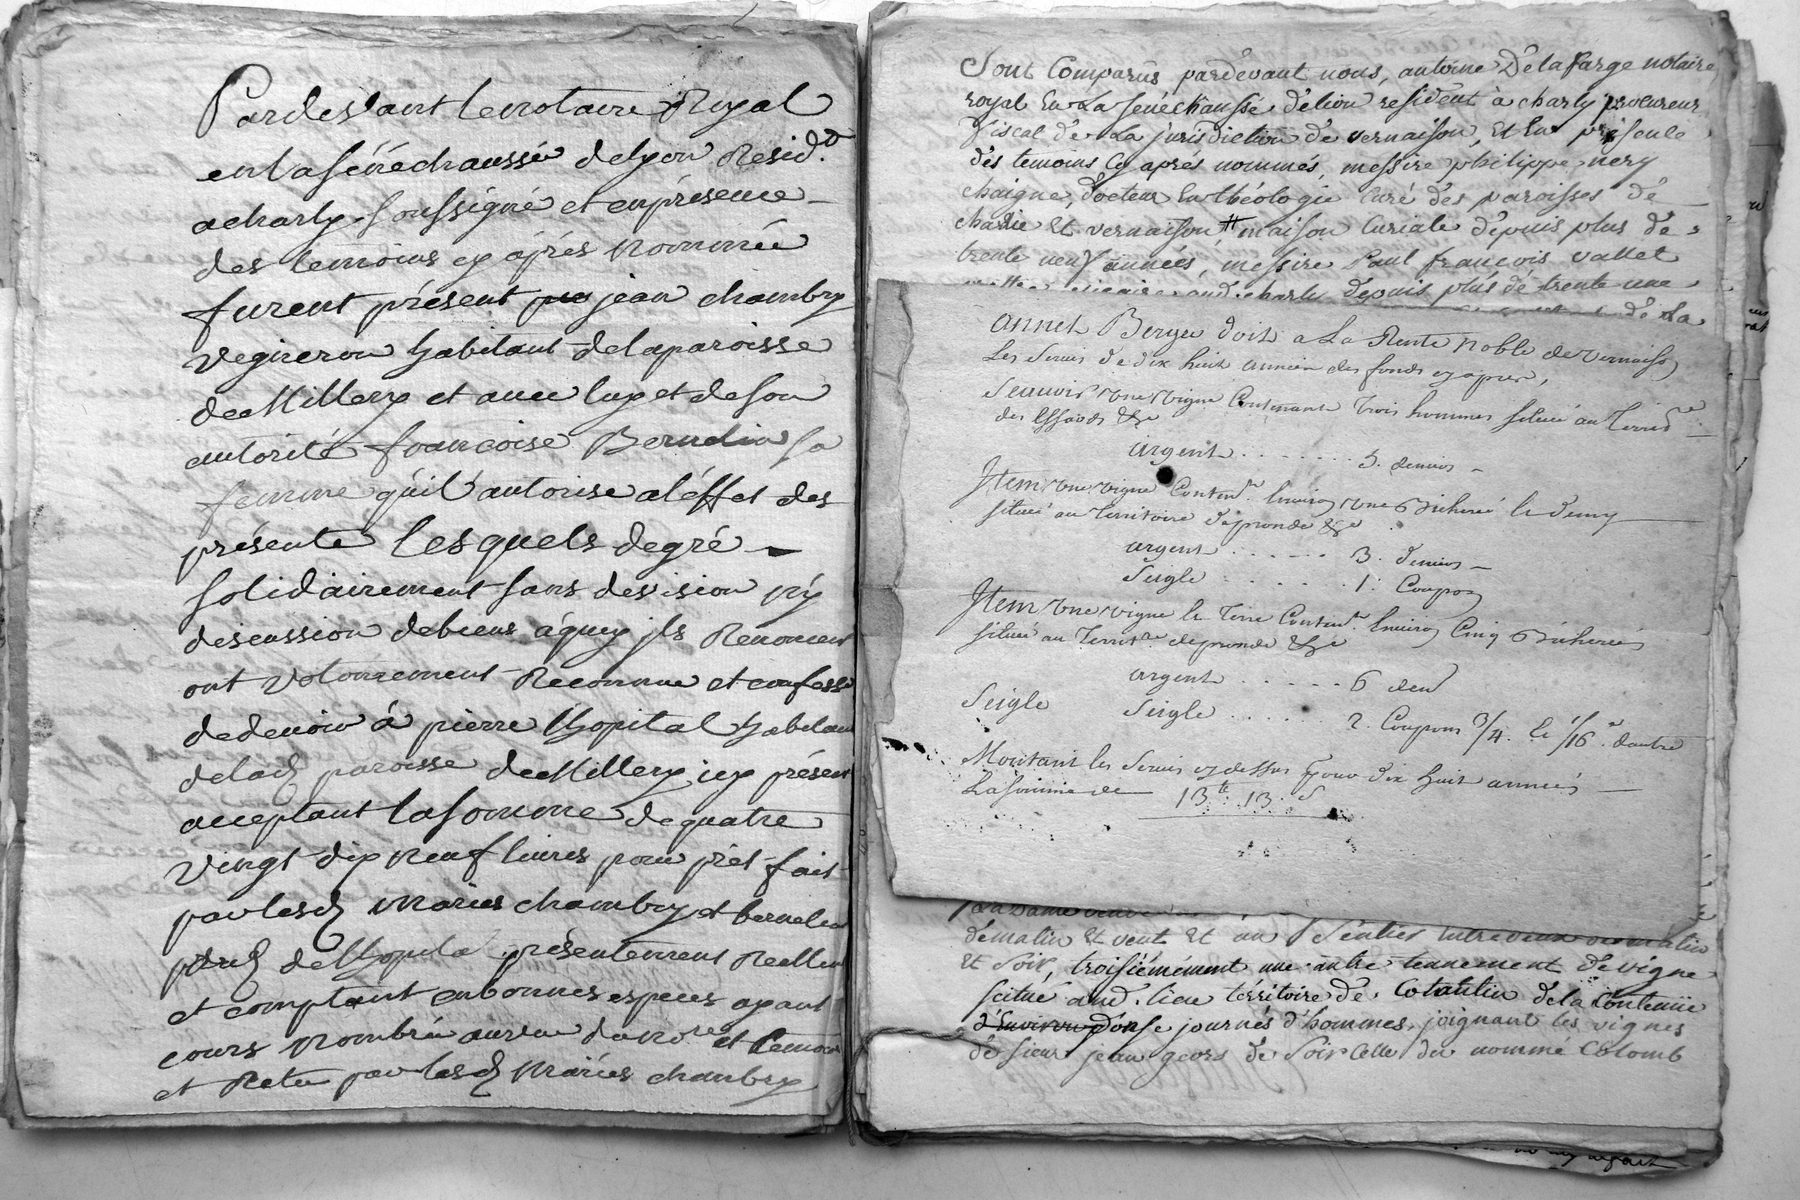 Pardesvant lenotaire Royal
enlasénéchaussée delyon Resid.t
acharly soussigné et enprésence
des temoins cy aprés nommée
furent présent jean chambry
vigneron habitant delaparoisse
demillery et avec luy et deson
autorité francoise Bernelin sa
femme qúil autorise aléffet des
présente lesquels degré
solidairement sans devision ny
discussion debiens áquoy jls Renoncent
ont volontairement Reconnue et confessé
dedevoir á pierre lhopital habitant
delad paroisse demillery icy présent
acceptant lasomme dequatre
vingt dix neuf livres pour prét fait
parlesd mariés chambry et bernelin
delhopital présentement Reellem
et comptant enbonnes especes ayant
cours nombrée aúvue duno.re et temoins
et Retir par lesd mariés chambry
Sont Comparús pardevant nous, antoine Délafarge notaire
royal En La senéchaussé délion resident à charly procureur
fiscal de La jurisdiction de vernaison, Et En présence
dés temoins Cy aprés nommés, messire philippe nery
chaigne, docteur En théologie Curé dés paroisses dé
charlie Et vernaison, # maison Curiale dépuis plus dé
trente neuf années, messire Paul françois vallet
vicaire aud. charly dépuis plús dé trente une
dé La
annet Berger doit a La Rente noble de vernaison
Les Servis de dix huit années des fonds cy apres,
Scavoir une vigne Contenant trois hommes située au Territ.re
des Essards &c
argent . . . . . . . 5. deniers
Item une vigne Conten.t Environ une Bicherée Et demy
située au Territoire dépronde &c
argent . . . . . . 3. deniers
Seigle . . . . . . 1. Coupon
Item une vigne Et Terre Conten.t Environ Cinq Bicherées
située au Territ.re depronde &c
argent . . . . . . 6 den
Seigle Seigle . . . . . 2. Coupons 3/4. Et 1/16.e dautre
Montant les Servis cy dessus pour dix huit années
Lasomme de 13.tt 13. s
démalin Et vent Et un Sentier Entredeux dematin
Et Soir, troisiémément une autre tennement dévigne
scitué aud. lieu térritoire dé Cotantin déla Contenüe
d'Environ d'onse journés d'hommes, joignant les vignes
dé sieur jean geors dé Soir Celle du nommé Colomb